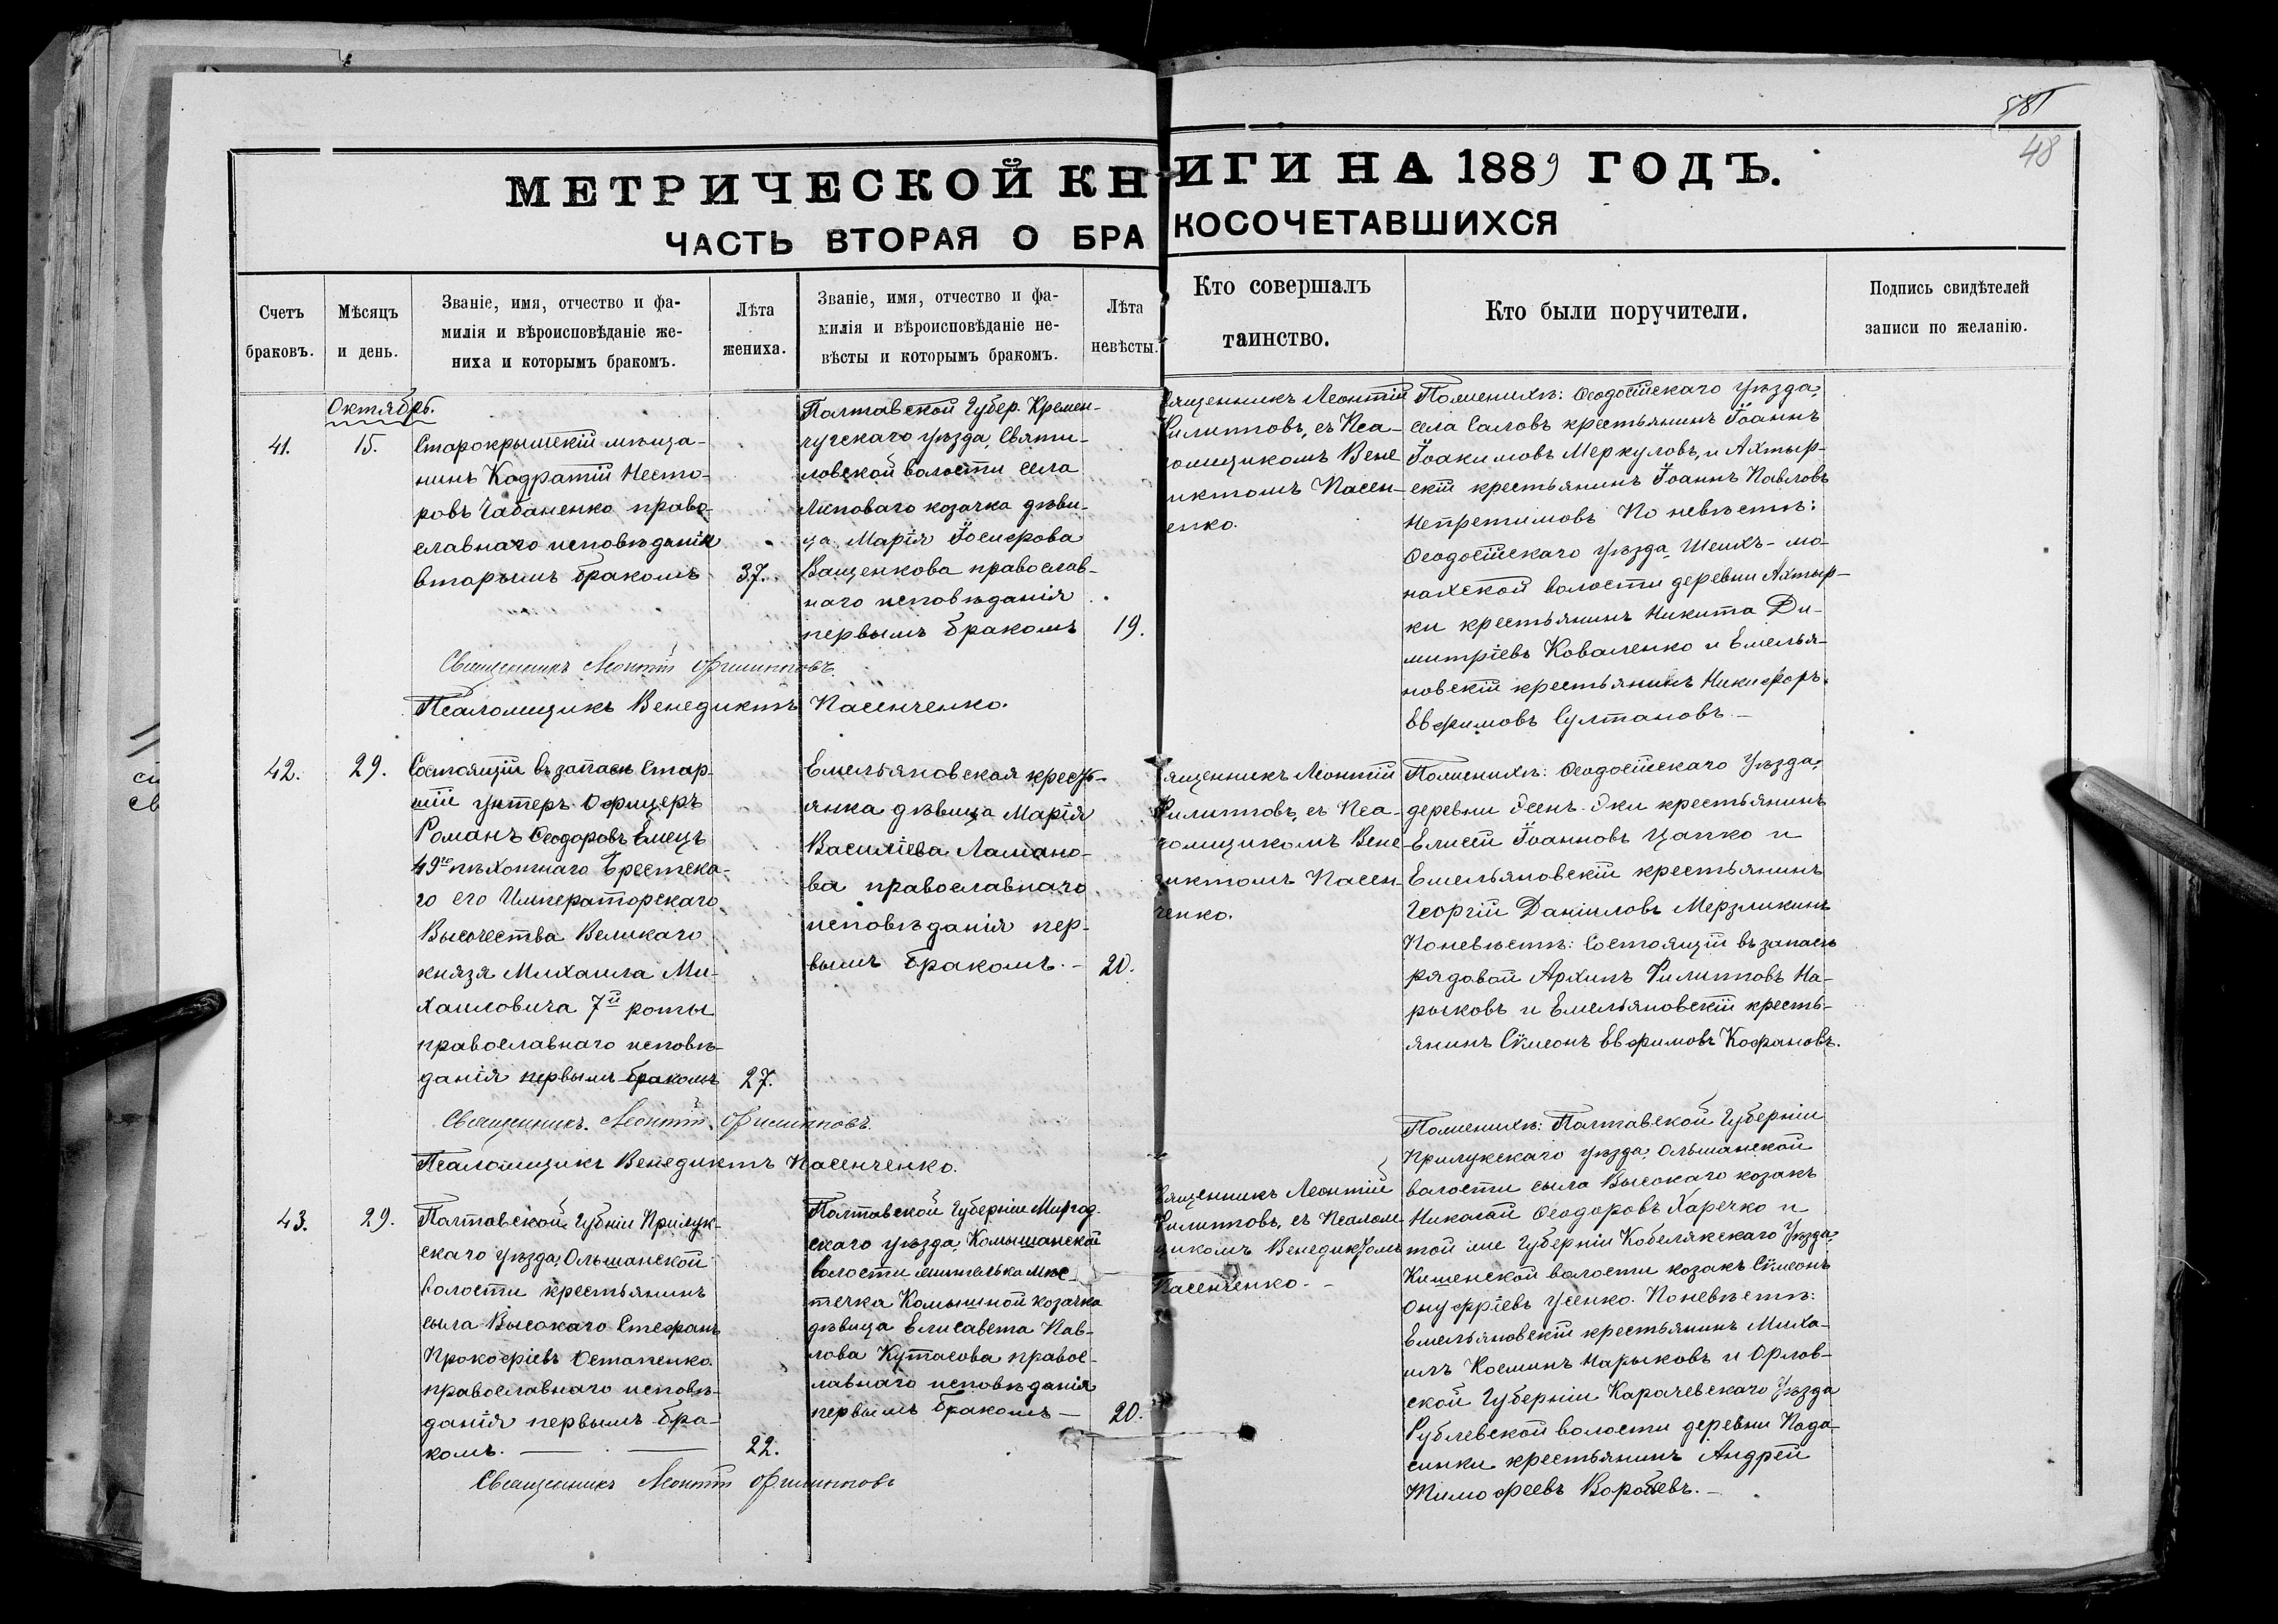 581
48
МЕТРИЧЕСКОЙ КНИГИ НА 1889 ГОДЪ.
ЧАСТЬ ВТОРАЯ О БРАКОСОЧЕТАВШИХСЯ
Счетъ
браковъ.
Мѣсяцъ
и день.
Званіе, имя, отчество и фа-
милія и вѣроисповѣданіе же-
ниха и которымъ бракомъ.
Лѣта
жениха.
Званіе, имя, отчество и фа-
милія и вѣроисповѣданіе не-
вѣсты и которымъ бракомъ.
Лѣта
невѣсты.
Кто совершалъ
таинство.
Кто были поручители.
Подпись свидѣтелей
записи по желанію.
Октябрь.
41.
15.
Старокрымскій мѣща-
нинъ Кодратій Несто-
ровъ Чабаненко право-
славнаго исповѣданія
вторымъ бракомъ
37.
Полтавской Губер. Кремен-
чугскаго уѣзда, Святи-
ловской волости села
Липоваго козачка дѣви-
ца Марія Іосифова
Ващенкова православ-
наго исповѣданія
первымъ бракомъ
19.
Священникъ Леонтій
Филипповъ, съ Пса-
ломщикомъ Вене
диктомъ Пасен-
ченко.
По женихѣ: Ѳеодосійскаго Уѣзда,
села Саловъ крестьянинъ Іоаннъ
Іоакимовъ Меркуловъ, и Ахтыр-
скій крестьянинъ Іоаннъ Павловъ
Непретимовъ По невѣстѣ:
Ѳеодосійскаго уѣзда, Шейхъ-мо-
нахской волости деревни Ахтыр-
ки крестьянинъ Никита Ди-
митріевъ Коваленко и Емелья-
новскій крестьянинъ Никифоръ
Евфимовъ Султановъ.–
Священникъ Леонтій Филипповъ.
Псаломщикъ Венедиктъ Пасенченко.
42.
29.
Состоящій въ запасѣ стар-
шій унтеръ Офицеръ
Романъ Ѳеодоровъ Емецъ
49го пѣхотнаго Брестска-
го его Императорскаго
Высочества Великаго
князя Михаила Ми-
хаиловича 7й роты
православнаго исповѣ-
данія первымъ бракомъ
27.
Емельяновская кресть-
янка дѣвица Марія
Василіева Ламано-
ва православнаго
исповѣданія пер-
вымъ бракомъ.–
20.
Священникъ Леонтій
Филипповъ, съ Пса-
ломщикомъ Вене-
диктомъ Пасен-
ченко.
По женихѣ: Ѳеодосійскаго Уѣзда,
деревни Эсенъ-Эки крестьянинъ
Елисей Іоанновъ Цапко и
Емельяновскій крестьянинъ
Георгій Даніиловъ Мерзликинъ
По невѣстѣ: Состоящій въ запасѣ
рядовой Архипъ Филипповъ На-
рыковъ и Емельяновскій кресть-
янинъ Сѵмеонъ Евфимовъ Кофановъ.
Священникъ Леонтій Филипповъ.
Псаломщикъ Венедиктъ Пасенченко.
43.
29.
Полтавской Губніи Прилук-
скаго уѣзда, Ольшанской
волости крестьянинъ
сыла Высокаго Стефанъ
Прокофіевъ Остапенко
православнаго исповѣ-
данія первымъ бра-
комъ.
22.
Полтавской Губерніи Миргод-
скаго уѣзда, Комышанской
волости жителька мѣс-
течка Комышной козачка
дѣвица Елисавета Пав-
лова Кутасова правос-
лавнаго исповѣданія
первымъ бракомъ–
20.
Священникъ Леонтій
Филипповъ, съ Псалом
щикомъ Венедиктомъ
Пасенченко.–
По женихѣ: Полтавской Губерніи
Прилукскаго уѣзда, Ольшанской
волости сыла Высокаго козакъ
Николай Ѳеодоровъ Харечко и
той же Губерніи Кобелякскаго Уѣзда,
Кишенской волости козакъ Сѵмеонъ
Онуфріевъ Усенко. По невѣстѣ:
Емельяновскій крестьянинъ Миха-
илъ Косминъ Нарыковъ и Орлов-
ской Губерніи Карачевскаго Уѣзда
Рублевской волости деревни Пода-
синки крестьянинъ Андрей
Тимофеевъ Воробьевъ.–
Священникъ Леонтій Филипповъ